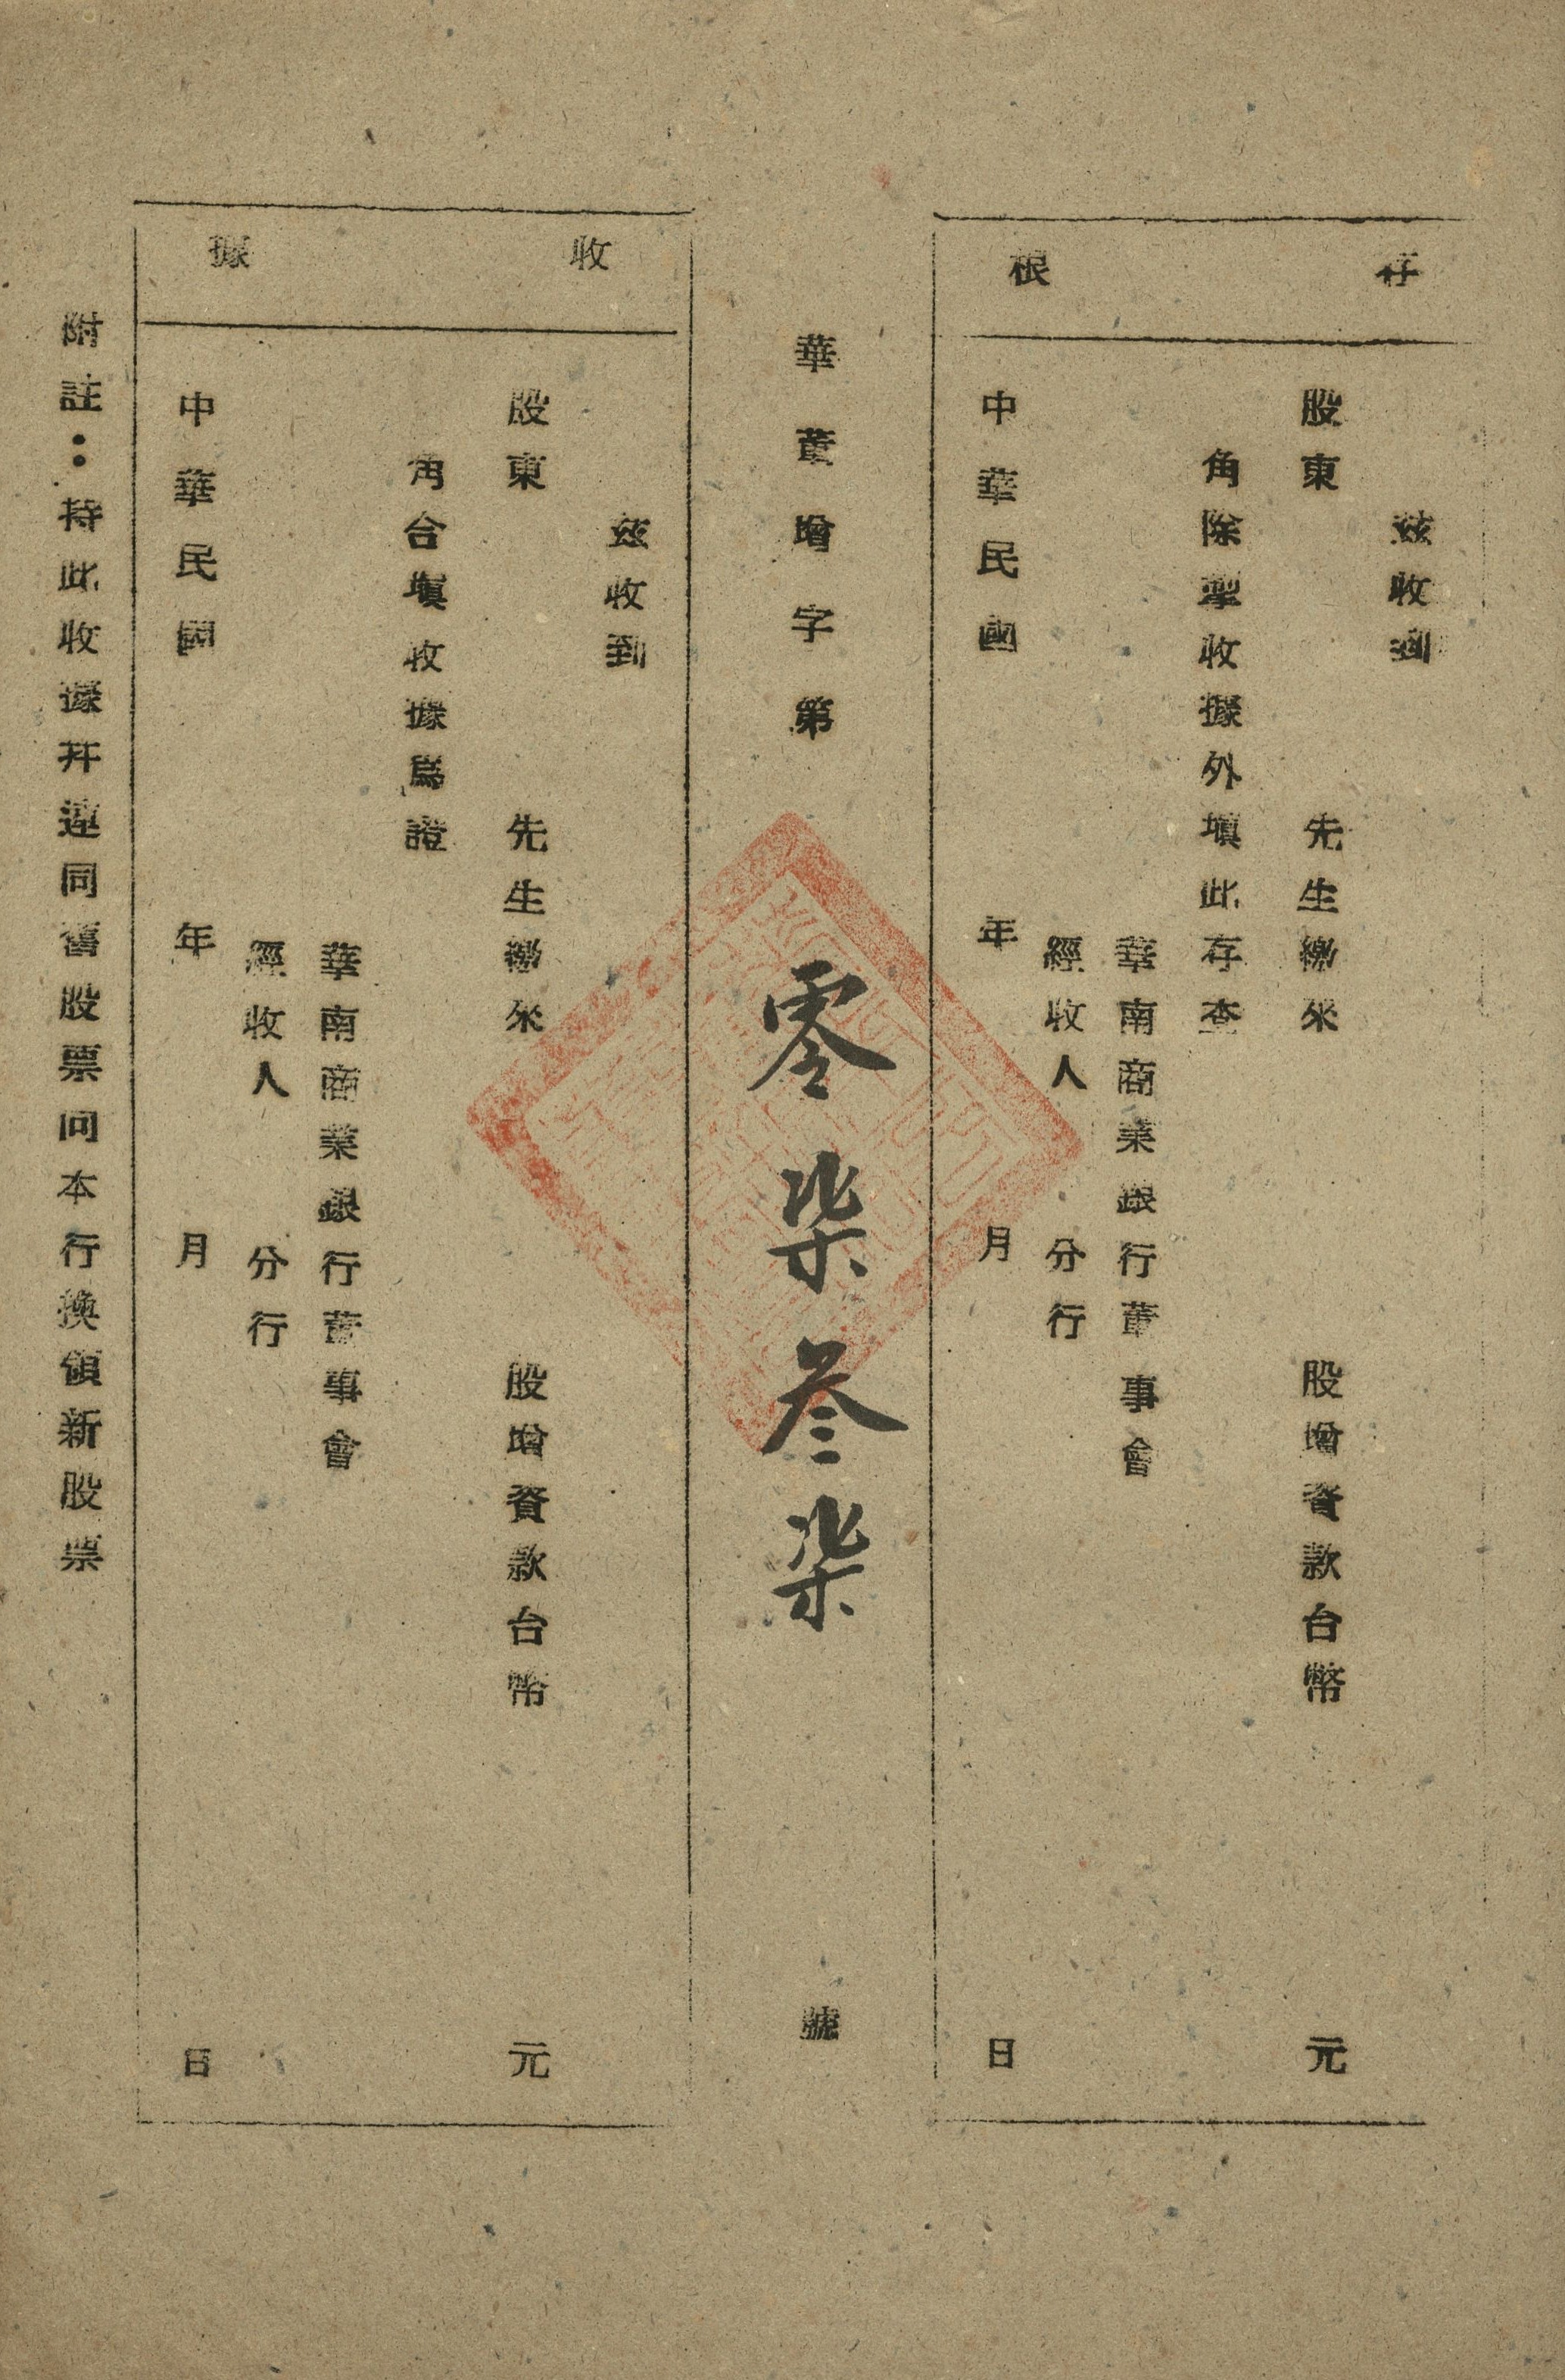 存根
茲收到
股東 先生繳來 股增資款台幣 元
角除掣收據外填此存查
華南商業銀行董事會
經收人 分行
中華民國 年 月 日
華董增字第 零柒叁柒 號
收據
茲收到
股東 先生繳來 股增資款台幣 元
角合填收據爲證
華南商業銀行董事會
經收人 分行
中華民國 年 月 日
附註：持此收據幷連同舊股票向本行換領新股票